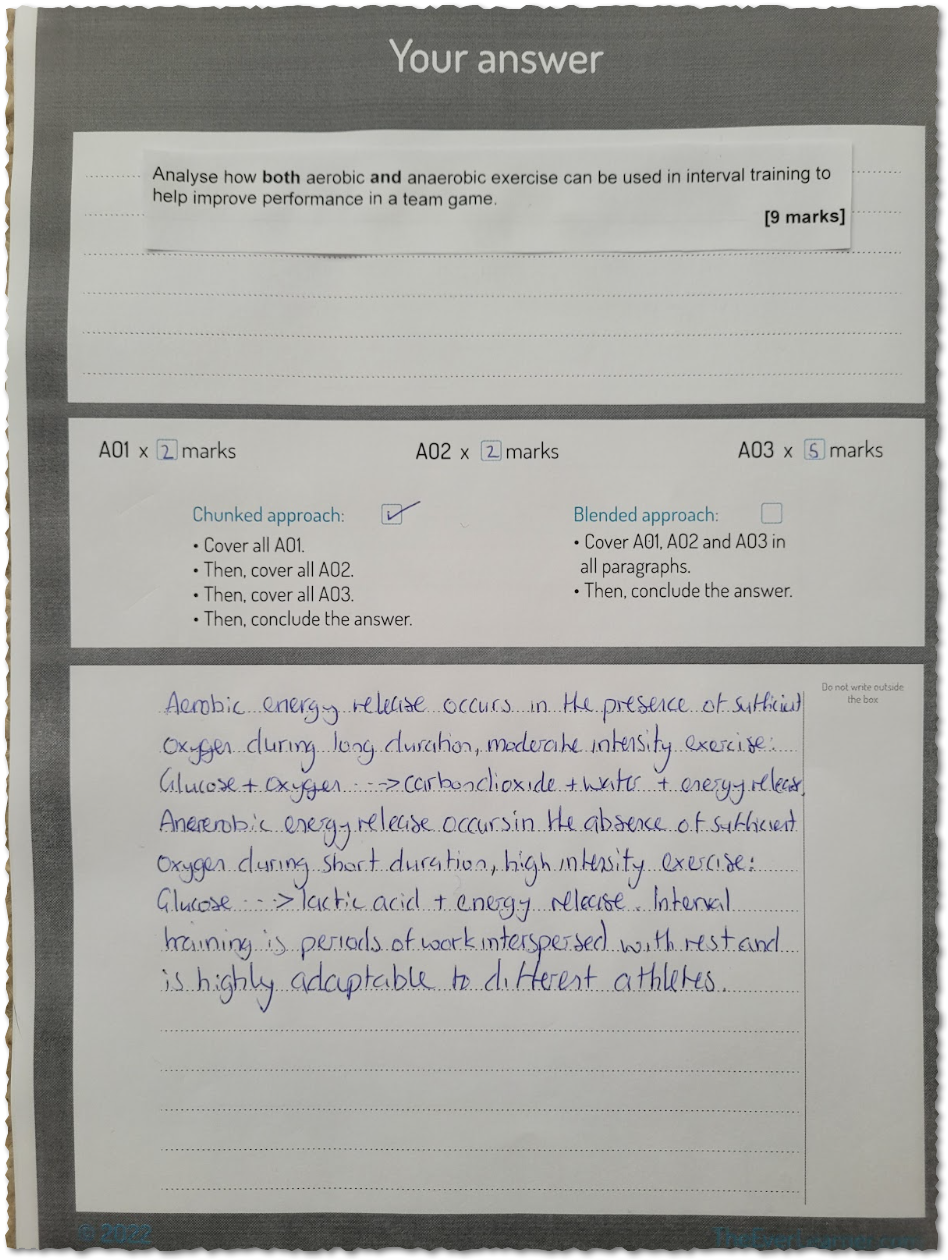 Your answer
Analyse how both aerobic and anaerobic exercise can be used in interval training to
help improve performance in a team game.
[9 marks]
AO1 x 2 marks
AO2 x 2 marks
AO3 x 5 marks
Chunked approach: ✓
• Cover all AO1.
• Then, cover all AO2.
• Then, cover all AO3.
• Then, conclude the answer.
Blended approach:
• Cover AO1, AO2 and AO3 in
all paragraphs.
• Then, conclude the answer.
Do not write outside
the box
Aerobic energy release occurs in the presence of sufficient
oxygen during long duration, moderate intensity exercise:
Glucose + oxygen --> carbon dioxide + water + energy release.
Anaerobic energy release occurs in the absence of sufficient
oxygen during short duration, high intensity exercise:
Glucose --> lactic acid + energy release. Interval
training is periods of work interspersed with rest and
is highly adaptable to different athletes.
© 2022